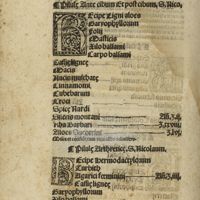 Pilulę Ante cibum Et post cibum, S. Nico,
Recipe Ligni aloes
Garyophyllorum
Folij
Masticis
Xilo balsami
Carpo balsami
Cassięligneę
Macis
Nucis muschatę
Cinnamomi
Cubebarum
Croci
Spicę Nardi
Sileris montani
Rhu Barbari
Aloes
Pilulę Arthreticę, S. Nicolaum,
Recipe Hermodactylorum
Turbith
Agarici
Cassięligneę
Garyophyllorum
Xilo balsami